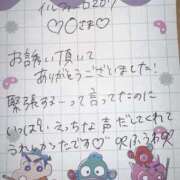 ♡○さま♡
お誘い頂いて
ありがとうございました!
緊張するーって言ってたのに
いっぱいえっちな声だしてくれて
うれしかったです♡